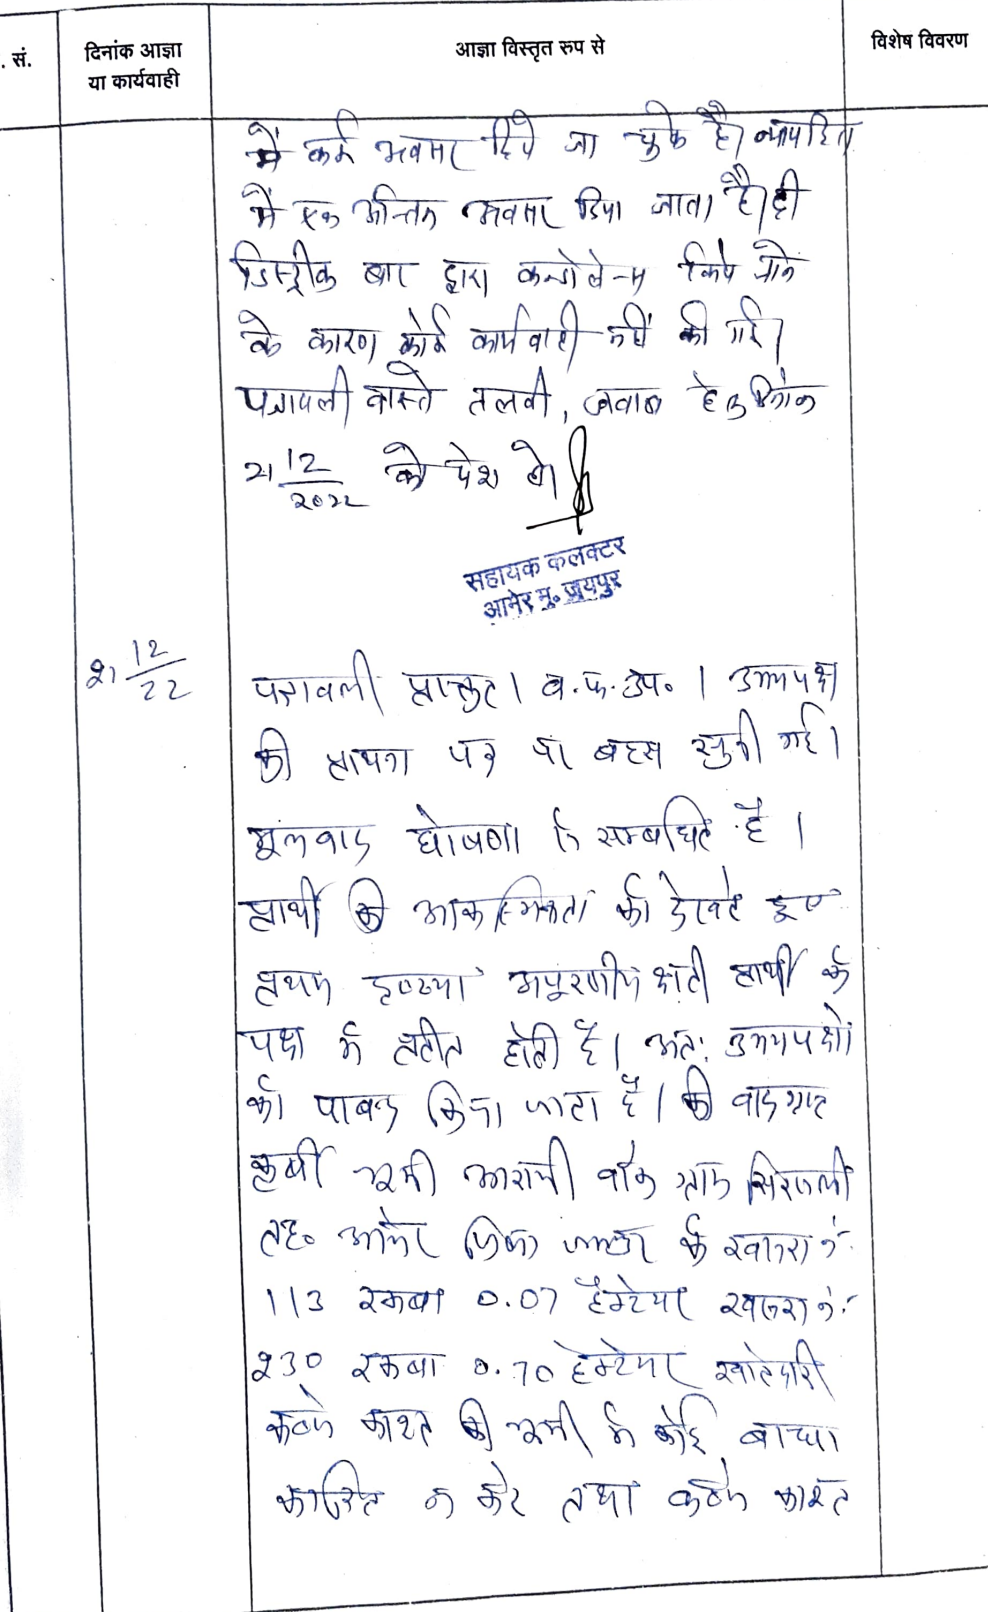 . सं.
दिनांक आज्ञा
या कार्यवाही
आज्ञा विस्तृत रुप से
विशेष विवरण
में कई अवसर दिये जा चुके है। न्यायहित
में एक अन्तिम अवसर दिया जाता है। दी
डिस्ट्रीक बार द्वारा कन्डोलेन्स किये जाने
के कारण कोई कार्यवाही नहीं की गई।
पत्रावली वास्ते तलबी, जवाब हेतु दिनांक
21 12/2022 को पेश हो।
सहायक कलक्टर
आमेर मु० जयपुर
21 12/22
पत्रावली प्रस्तुत। व.फ.उप०। उभयपक्ष
की प्रार्थना पत्र पर बहस सुनी गई।
मूलवाद घोषणा से सम्बंधित है।
प्रार्थी की आकस्मिकता को देखते हुए
प्रथम दृष्टया अपूरणीय क्षती प्रार्थी के
पक्ष में प्रतीत होती है। अतः उभयपक्षों
को पाबन्द किया जाता है। की वादग्रस्त
कृषी भूमी आराजी वाके ग्राम सिरसली
तह० आमेर जिला जयपुर के खसरा नं.
113 रकबा 0.07 हैक्टेयर खसरा नं.
230 रकबा 0.70 हेक्टेयर खातेदारी
कब्जे काश्त की भूमी में कोई बाधा
कारित न करे तथा कब्जे काश्त